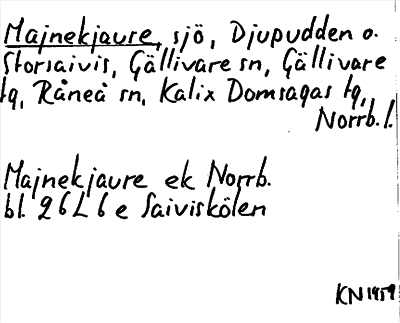 Majnekjaure, sjö, Djupudden o.
Storsaivis, Gällivare sn, Gällivare
tg, Råneå sn, Kalix Domsagas tg,
Norrb. l.
Majnekjaure ek Norrb.
bl. 26L6e Saiviskölen
KN 1959